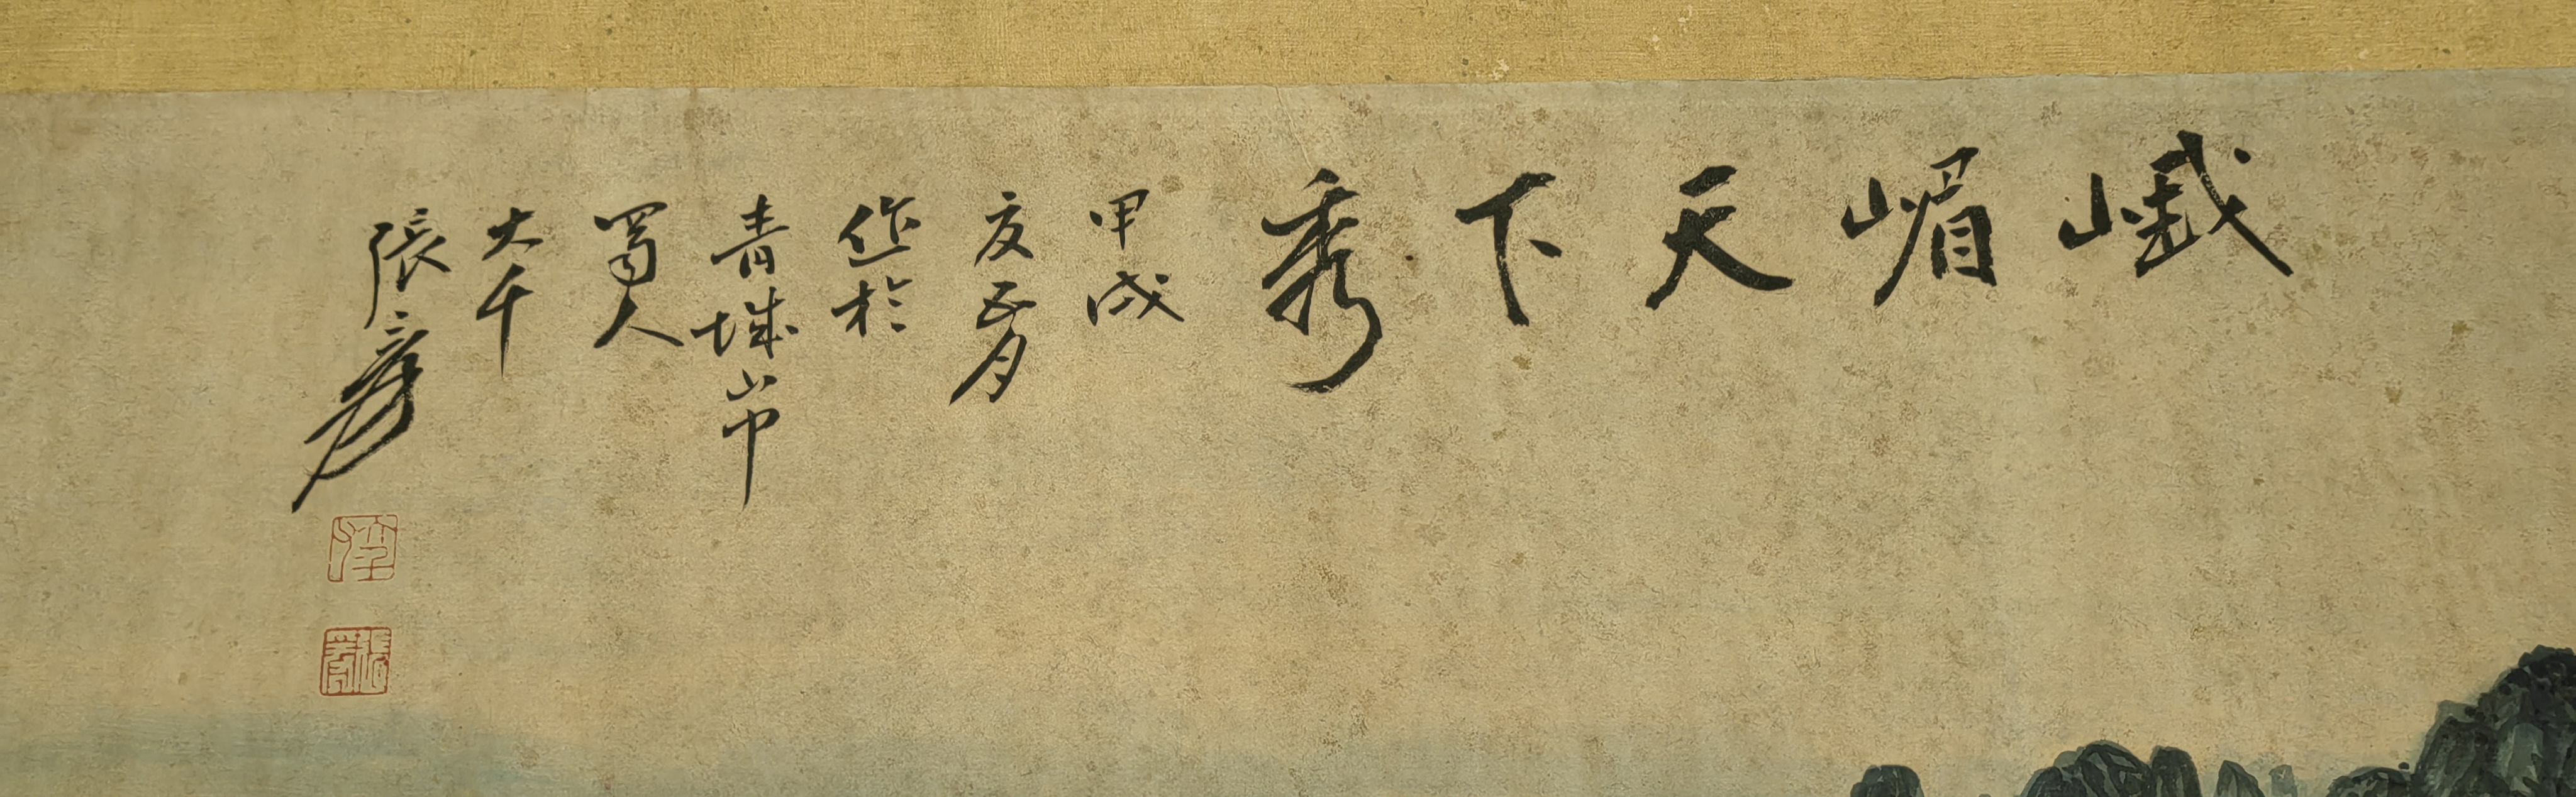 峨嵋天下秀
甲戌
夏五月
作於
青城山中
蜀人
大千
張爰